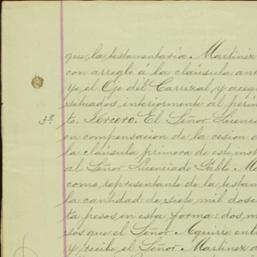 que la testamentaria Martinez
con arreglo á la cláusula an
y el Ojo del Carrizal, y aceq
situados interiormente al perím
3º to. Tercero: El Señor Licenc
en compensacion de la cesion d
la cláusula primera de este
al Señor Licenciado Pablo M
como representante de la testam
la cantidad de siete mil dosc
ta pesos en esta forma: dos m
sos que el Señor Aguirre ent
y recibe el Señor Martinez